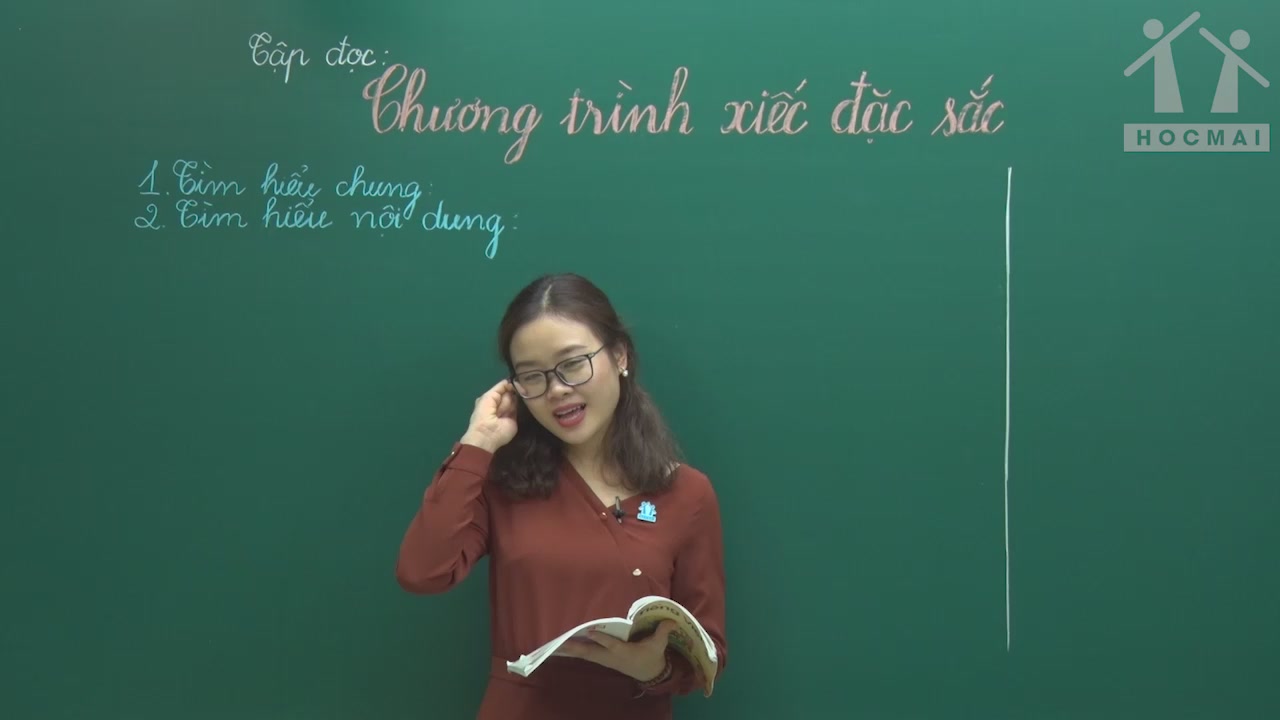 Tập đọc:
Chương trình xiếc đặc sắc
HOCMAI
1. Tìm hiểu chung:
2. Tìm hiểu nội dung: